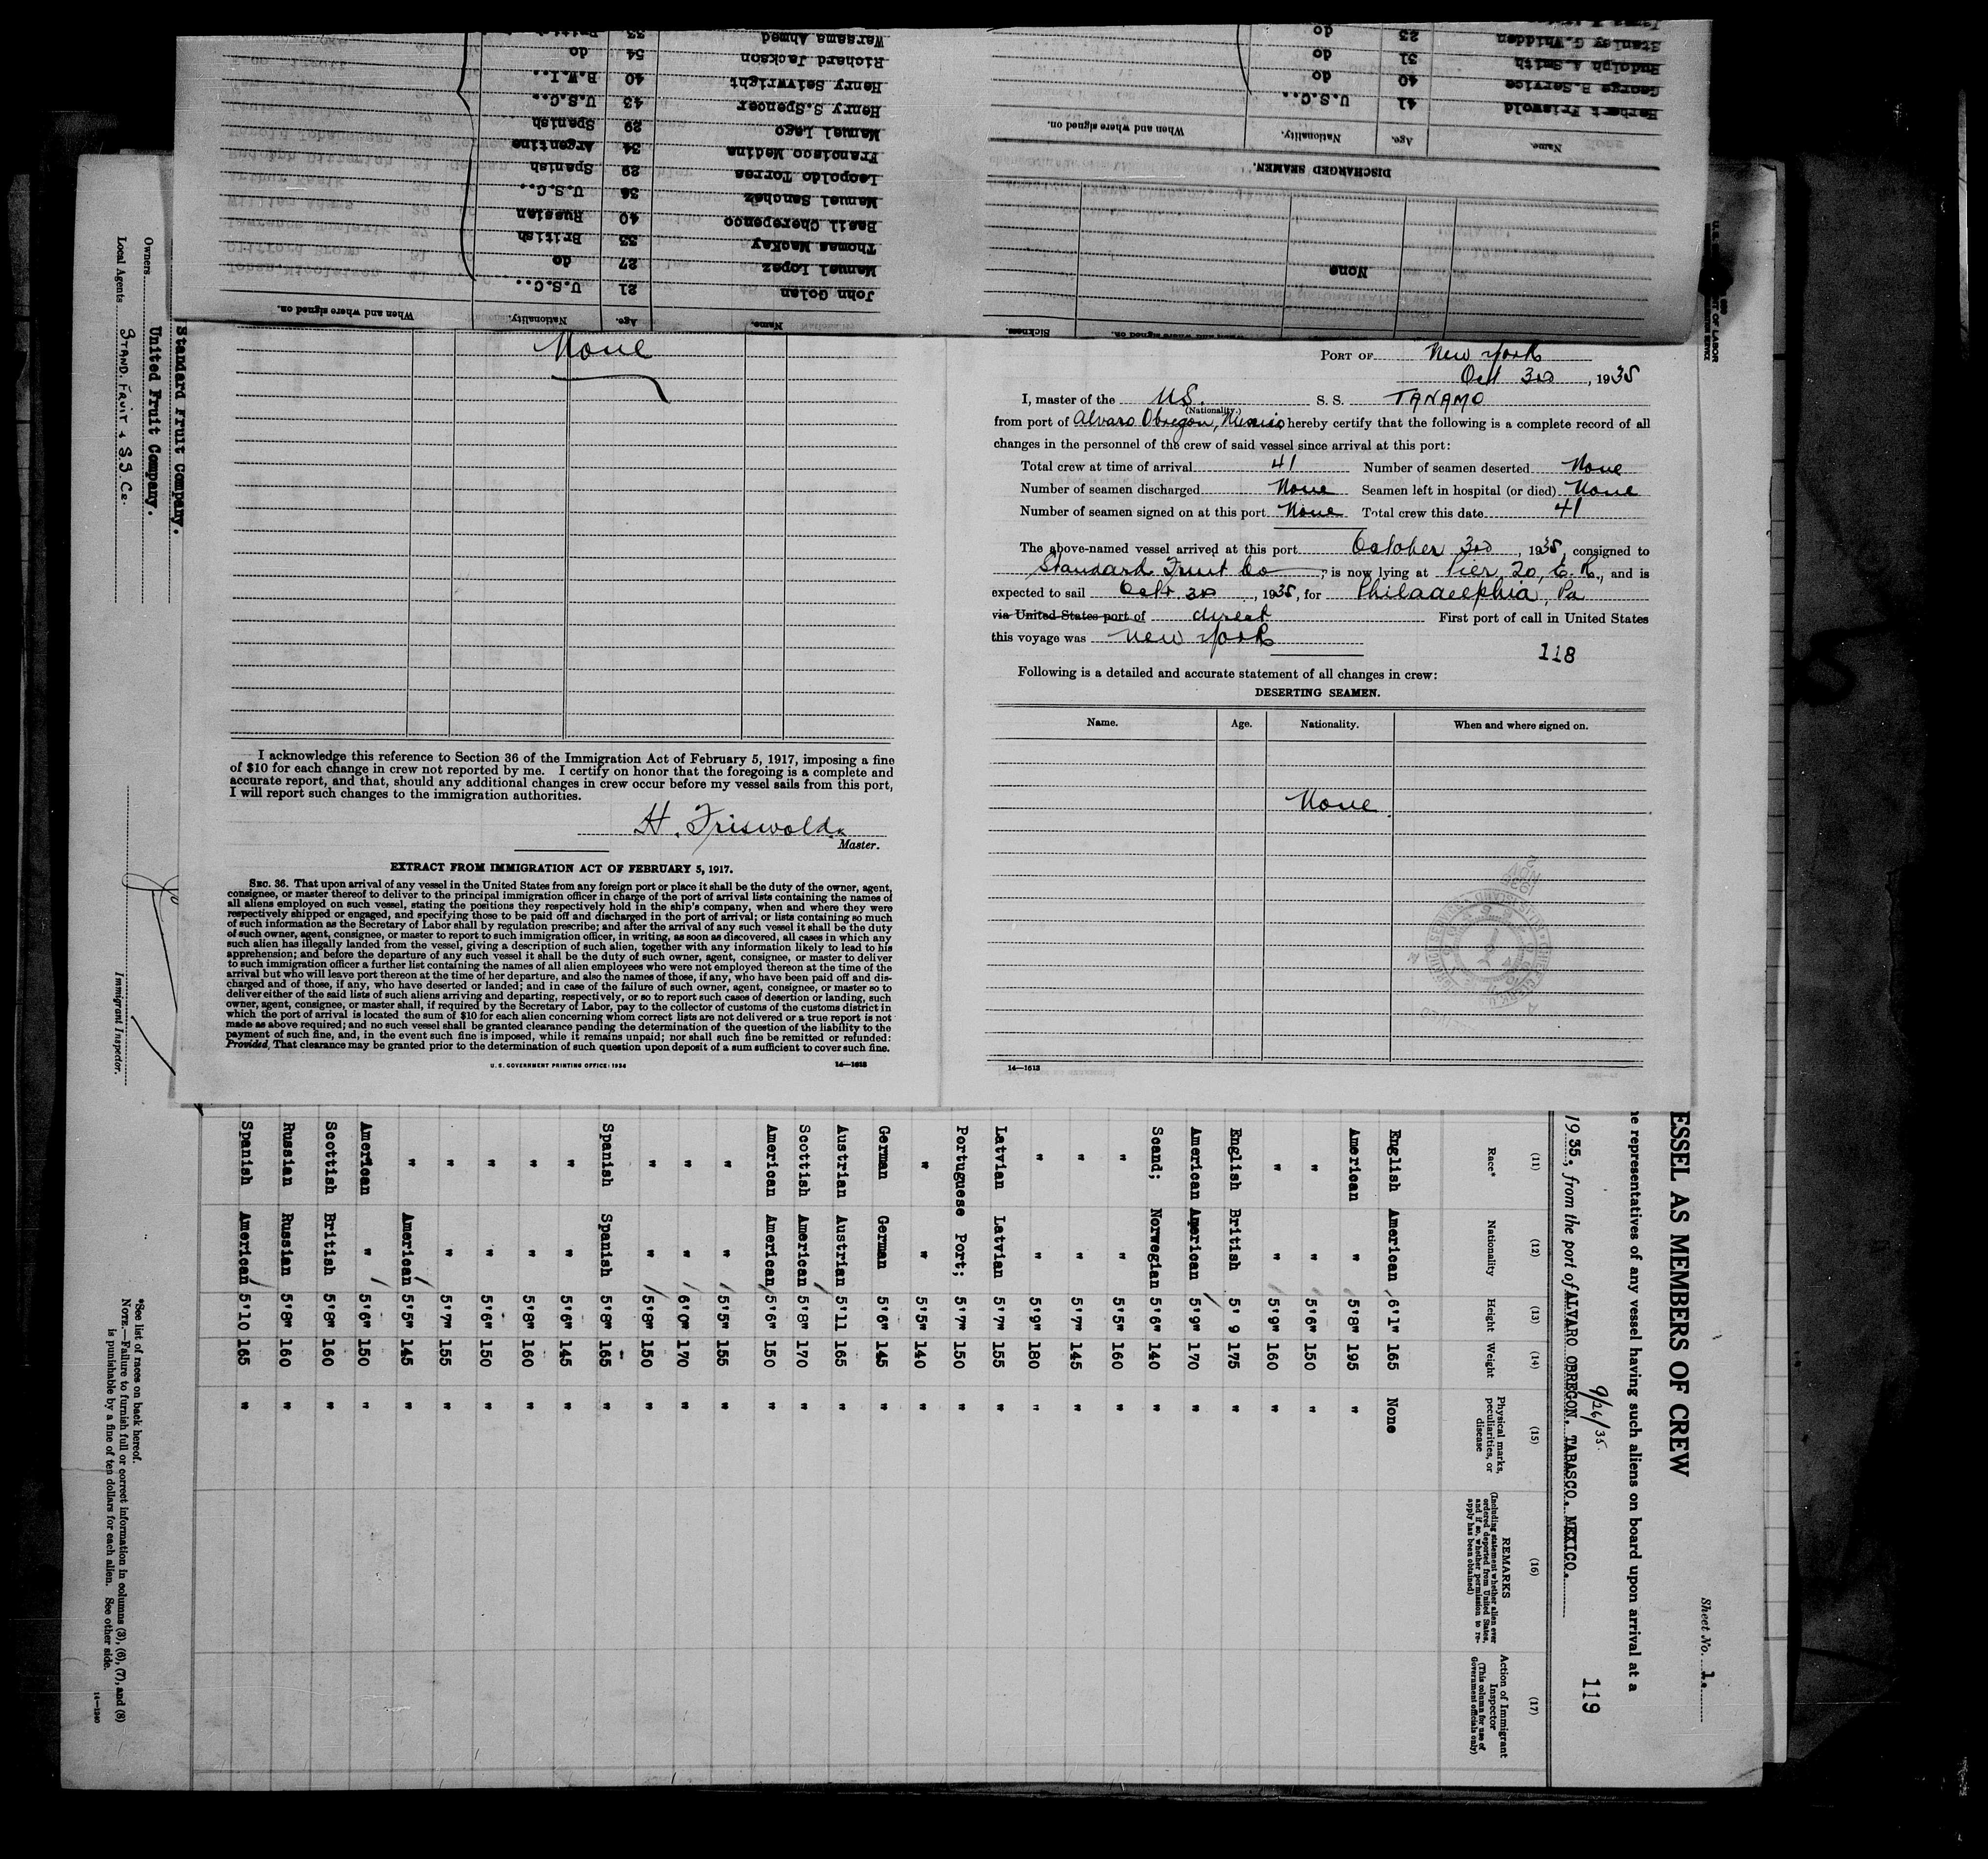 Warsama Ahmed 33
Richard Jackson 54 do
Henry Seivwright 40 B.W.I..
Henry S.Spencer 43 U.S.C..
Manuel Lago 29 Spanish
Francisco Medina 34 Argentine
Leopoldo Torres 29 Spanish
Manuel Sanchez 36 U.S.C..
Basil Cherepenco 40 Russian
Thomas MacKay 33 British
Manuel Lopez 27 do
John Golen 21 U.S.C..
Name. Age. Nationality. When and where signed on.
Stanley G.Whidden 23 do
Rudolph A Smith 31 do
George B.Service 40 do
Herbert Friswold 41 U.S.C..
Name. Age. Nationality. When and where signed on.
DISCHARGED SEAMEN.
None
Sickness.
None
I acknowledge this reference to Section 36 of the Immigration Act of February 5, 1917, imposing a fine
of $10 for each change in crew not reported by me. I certify on honor that the foregoing is a complete and
accurate report, and that, should any additional changes in crew occur before my vessel sails from this port,
I will report such changes to the immigration authorities.
H. Friswold.
Master.
EXTRACT FROM IMMIGRATION ACT OF FEBRUARY 5, 1917.
SEC. 36. That upon arrival of any vessel in the United States from any foreign port or place it shall be the duty of the owner, agent,
consignee, or master thereof to deliver to the principal immigration officer in charge of the port of arrival lists containing the names of
all aliens employed on such vessel, stating the positions they respectively hold in the ship's company, when and where they were
respectively shipped or engaged, and specifying those to be paid off and discharged in the port of arrival; or lists containing so much
of such information as the Secretary of Labor shall by regulation prescribe; and after the arrival of any such vessel it shall be the duty
of such owner, agent, consignee, or master to report to such immigration officer, in writing, as soon as discovered, all cases in which any
such alien has illegally landed from the vessel, giving a description of such alien, together with any information likely to lead to his
apprehension; and before the departure of any such vessel it shall be the duty of such owner, agent, consignee, or master to deliver
to such immigration officer a further list containing the names of all alien employees who were not employed thereon at the time of the
arrival but who will leave port thereon at the time of her departure, and also the names of those, if any, who have been paid off and dis-
charged and of those, if any, who have deserted or landed; and in case of the failure of such owner, agent, consignee, or master so to
deliver either of the said lists of such aliens arriving and departing, respectively, or so to report such cases of desertion or landing, such
owner, agent, consignee, or master shall, if required by the Secretary of Labor, pay to the collector of customs of the customs district in
which the port of arrival is located the sum of $10 for each alien concerning whom correct lists are not delivered or a true report is not
made as above required; and no such vessel shall be granted clearance pending the determination of the question of the liability to the
payment of such fine, and, in the event such fine is imposed, while it remains unpaid; nor shall such fine be remitted or refunded:
Provided, That clearance may be granted prior to the determination of such question upon deposit of a sum sufficient to cover such fine.
U. S. GOVERNMENT PRINTING OFFICE: 1934 14—1613
PORT OF New York
Oct 3rd, 1935
I, master of the U.S. S. S. TANAMO
(Nationality.)
from port of Alvaro Obregon, Mexico hereby certify that the following is a complete record of all
changes in the personnel of the crew of said vessel since arrival at this port:
Total crew at time of arrival 41 Number of seamen deserted None
Number of seamen discharged None Seamen left in hospital (or died) None
Number of seamen signed on at this port None Total crew this date 41
The above-named vessel arrived at this port October 3rd, 1935, consigned to
Standard Fruit Co, is now lying at Pier 20, E. R., and is
expected to sail Oct 3rd, 1935, for Philadelphia, Pa
via United States port of direct First port of call in United States
this voyage was New York
118
Following is a detailed and accurate statement of all changes in crew:
DESERTING SEAMEN.
Name. Age. Nationality. When and where signed on.
None
14—1613
Standard Fruit Company.
United Fruit Company.
Owners
Local Agents STAND. FRUIT & S.S. Co.
Immigrant Inspector.
Sheet No. 1.
ESSEL AS MEMBERS OF CREW
he representatives of any vessel having such aliens on board upon arrival at a
9/26/35.
1935, from the port of ALVARO OBREGON. TABASCO. MEXICO.
119
(11) (12) (13) (14) (15) (16) (17)
Race* Nationality Height Weight Physical marks, peculiarities, or disease
REMARKS (Including statement whether alien ever ordered deported from United States, and if so, whether permission to re-apply has been obtained)
Action of Immigrant Inspector (This column for use of Government officials only)
English American 6'1" 165 None
American " 5'8" 195 "
" " 5'6" 150 "
" " 5'9" 160 "
English British 5' 9 175 "
American American 5'9" 170 "
Scand; Norwegian 5'6" 140 "
" " 5'5" 160 "
" " 5'7" 145 "
" " 5'9" 180 "
Latvian Latvian 5'7" 155 "
Portuguese Port; 5'7" 150 "
" " 5'5" 140 "
German German 5'6" 145 "
Austrian Austrian 5'11 165 "
Scottish American 5'8" 170 "
American American 5'6" 150 "
" " 5'5" 155 "
" " 6'0" 170 "
" " 5'8" 150 "
Spanish Spanish 5'8" 165 "
" " 5'6" 145 "
" " 5'8" 160 "
" " 5'6" 150 "
" " 5'7" 155 "
" American 5'5" 145 "
American " 5'6" 150 "
Scottish British 5'8" 160 "
Russian Russian 5'8" 160 "
Spanish American 5'10 165 "
*See list of races on back hereof.
NOTE.—Failure to furnish full or correct information in columns (3), (6), (7), and (8)
is punishable by a fine of ten dollars for each alien. See other side.
14—1240